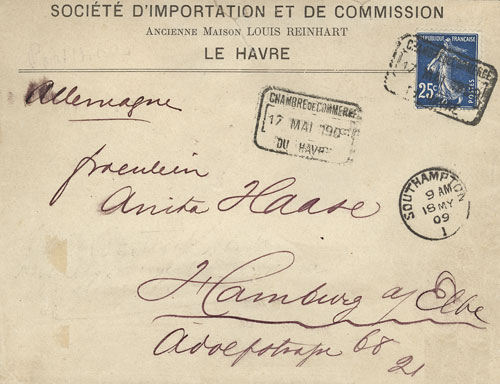 SOCIÉTÉ D'IMPORTATION ET DE COMMISSION
ANCIENNE MAISON LOUIS REINHART
LE HAVRE
REPUBLIQUE FRANÇAISE
25c
POSTES
CHAMBRE DE COMMERCE
17
CHAMBRE DE COMMERCE
17 MAI 190
DU HAVRE
Allemagne
fraeulein
Anita Haase
SOUTHAMPTON
9 AM
18 MY
09
1
Hamburg a/Elbe
Adolfstrasse 68
21